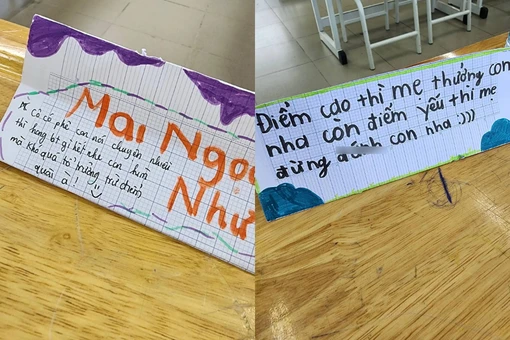 Mai Ngọc
Như
Cô cà phê con nói chuyện nhiều
thì hông bt gì hết nhe con hiền
mà khổ quá tổ trưởng trừ điểm
quài à !
Điểm cao thì mẹ thưởng con
nha còn điểm yếu thì mẹ
đừng đánh con nha :)))